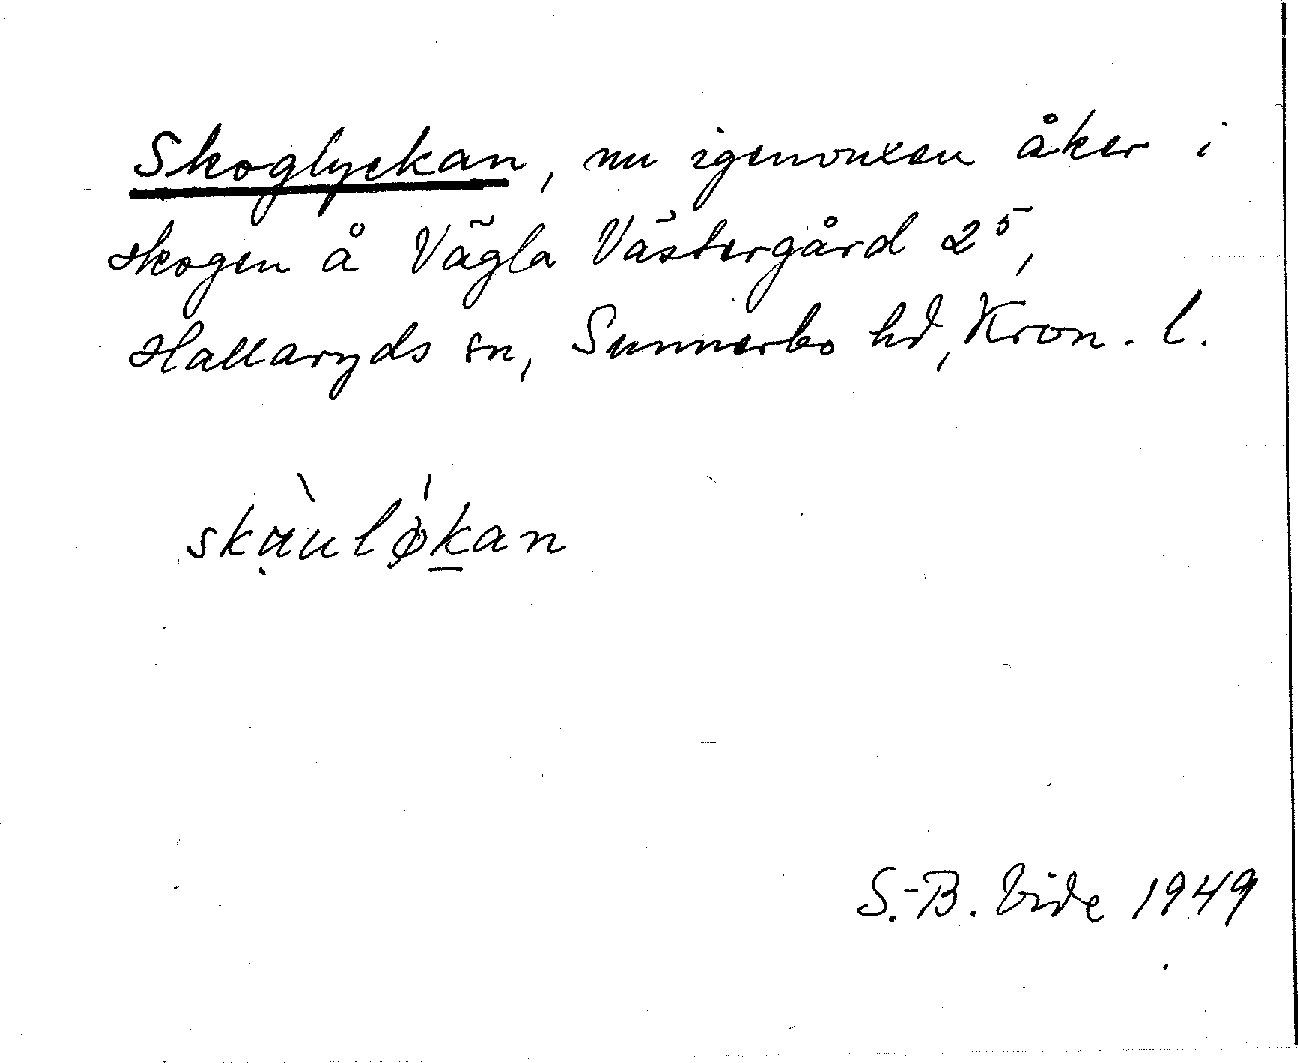 Skoglyckan, nu igenvuxen åker i
skogen å Vägla Västergård 2⁵,
Hallaryds sn, Sunnerbo hd, Kron. l.
skạ̀ulǿḵan
S.-B. Vide 1949